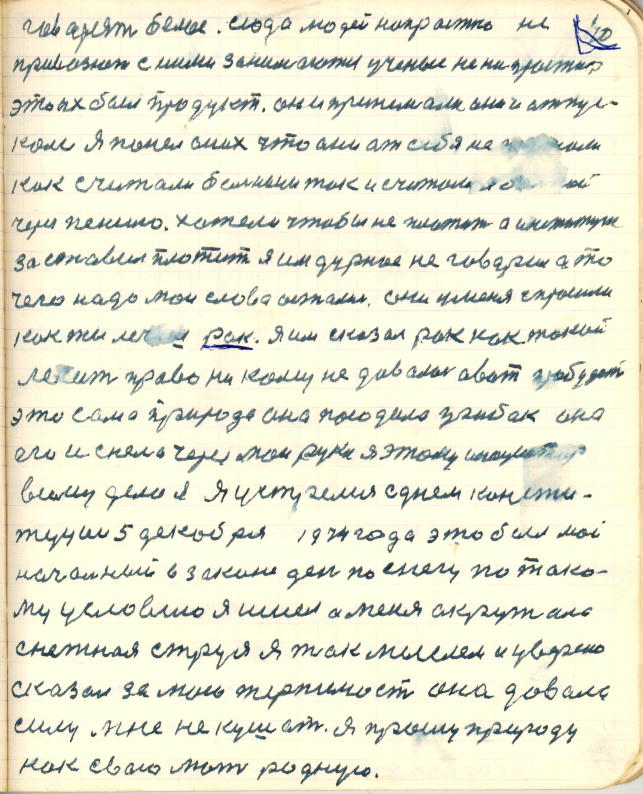 говарят белое. сюда людей напрастно не
привозют с ними занимаются ученые не на простор
этоих был продукт. они принимали они и отпус-
кали Я понел оних что они от себя не
как считали больнони так и считали
через пению. хотели чтобы не платит а институт
заставил платит я им дурное не говарил а то
чего надо мои слова остались. они уменя спросили
как ты лечил рак. я им сказал рак как такой
лечит право ни кому не довалос а вот
это сама природа она посодила грыбак она
его и снела через мои руки я этому институтс
вому дела Я Я устремился с днем констит-
туции 5 декабря 1974 года это был мой
начальный в законе ден по снегу по тако-
му условию Я ишел а меня акружала
снежная струя Я так мыслем и уверено
сказал за мою терпимост она довала
силу мне не кушат. Я прошу природу
как сваю мат родную.